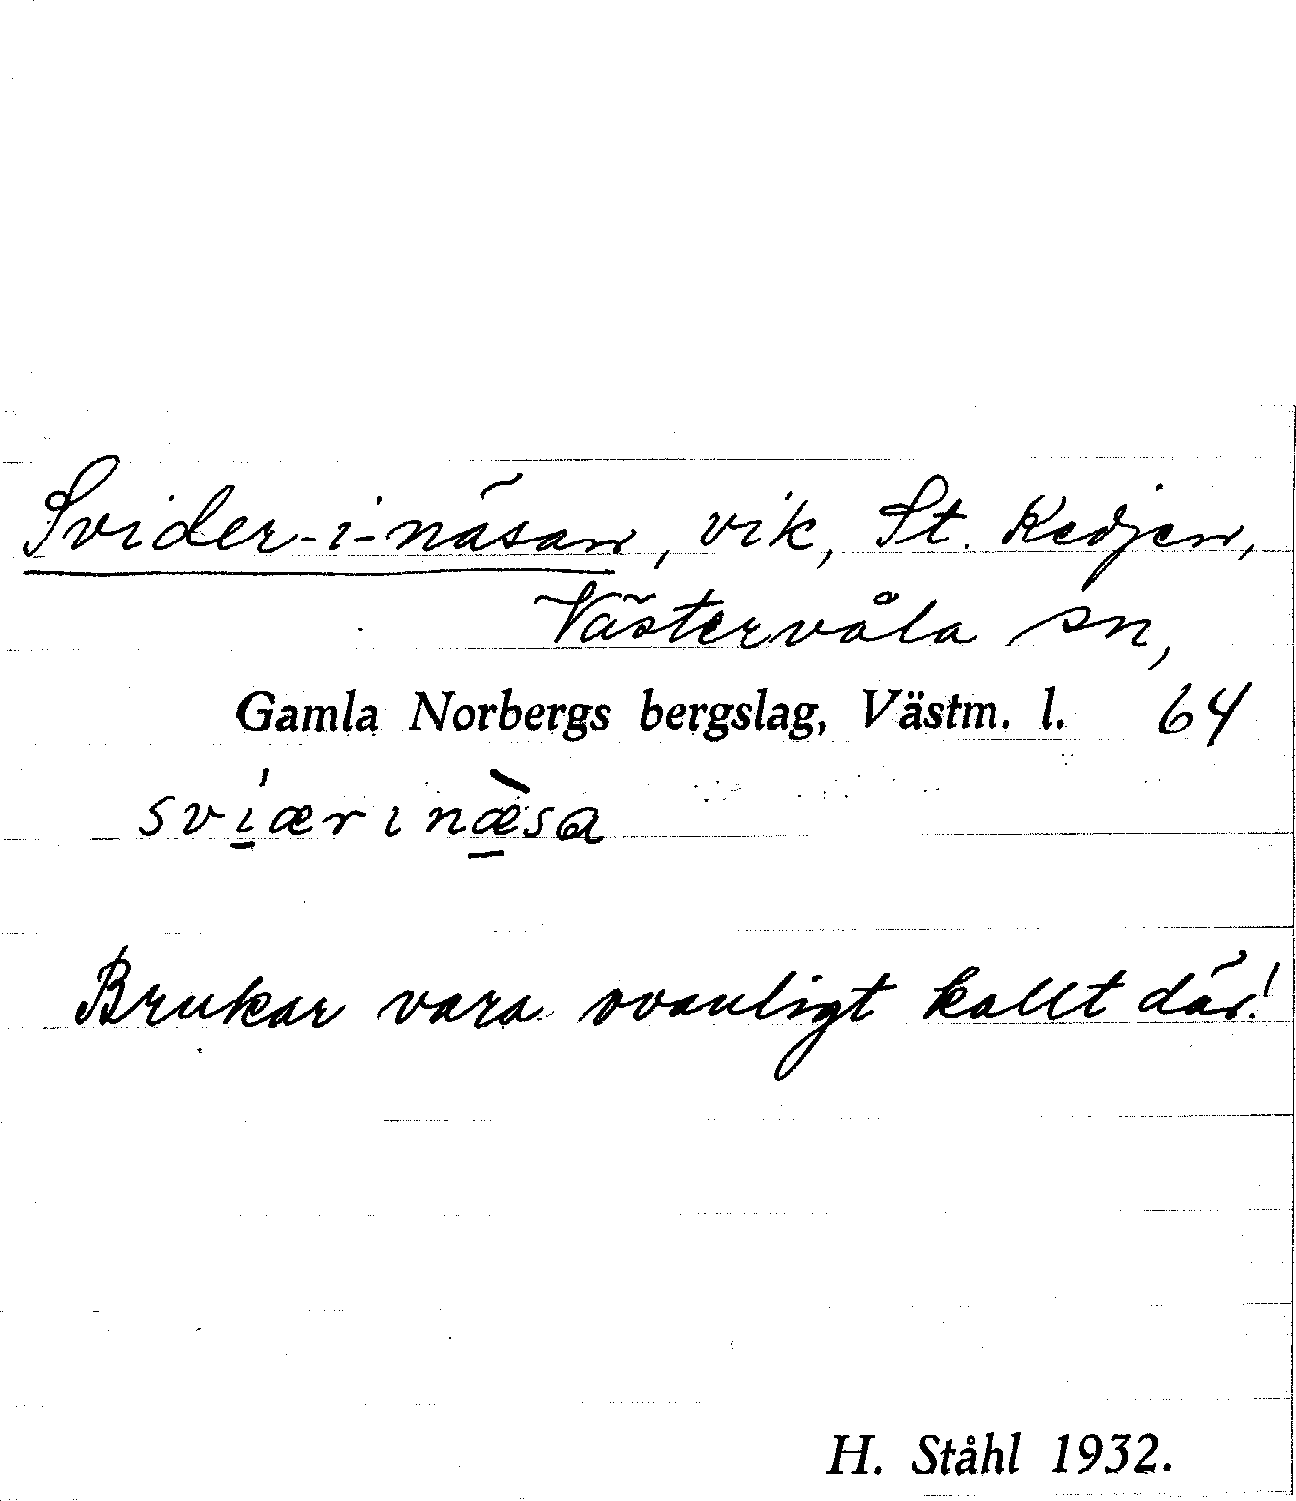 Svider-i-näsan, vik, St. Kedjen,
Västervåla sn,
Gamla Norbergs bergslag, Västm. l. 64
sví̱ærinæ̱̀sa
Brukar vara ovanligt kallt där!
H. Ståhl 1932.